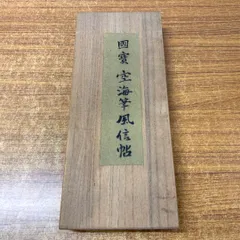 國寳 空海筆風信帖